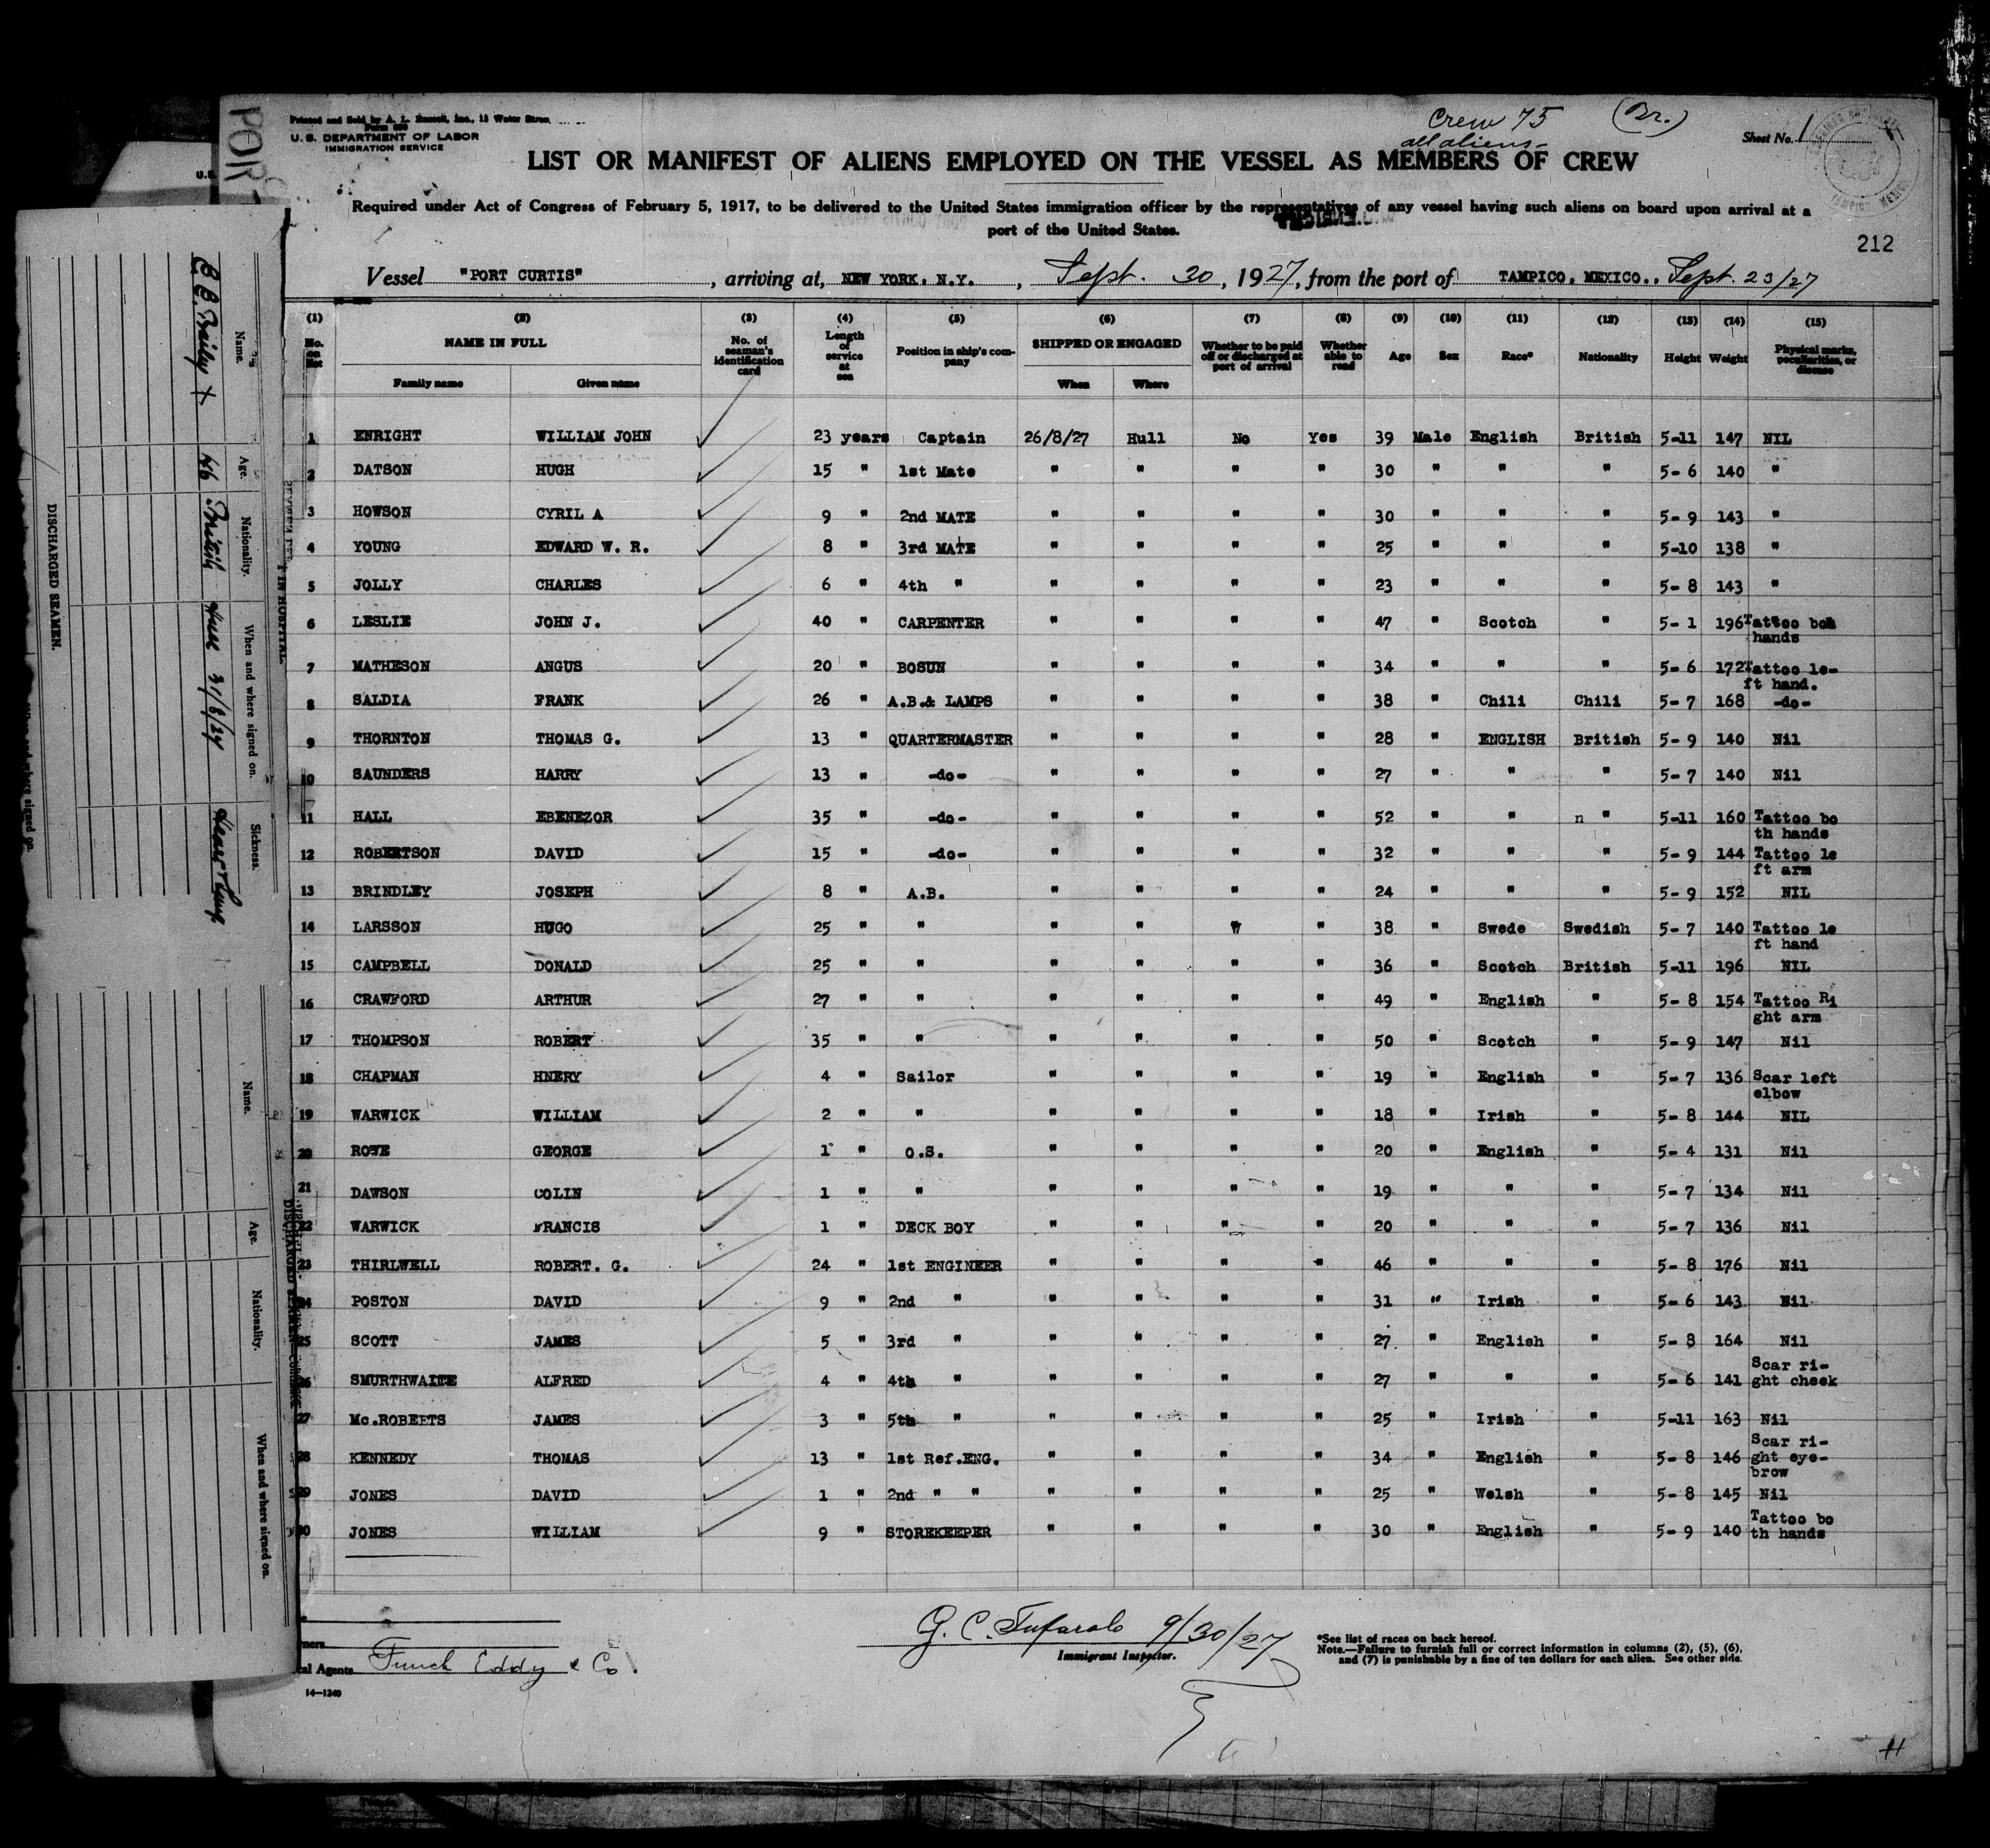 Printed and Sold by A. L. Russell, Inc., 12 Water Street
U. S. DEPARTMENT OF LABOR
IMMIGRATION SERVICE
Crew 75 (Br.)
all aliens-
Sheet No. 1
LIST OR MANIFEST OF ALIENS EMPLOYED ON THE VESSEL AS MEMBERS OF CREW
Required under Act of Congress of February 5, 1917, to be delivered to the United States immigration officer by the representatives of any vessel having such aliens on board upon arrival at a
port of the United States.
212
Vessel "PORT CURTIS", arriving at, NEW YORK. N.Y., Sept. 30, 1927, from the port of TAMPICO, MEXICO., Sept. 23/27
(1) (2) (3) (4) (5) (6) (7) (8) (9) (10) (11) (12) (13) (14) (15)
No. on list NAME IN FULL Family name Given name No. of seaman's identification card Length of service at sea Position in ship's company SHIPPED OR ENGAGED When Where Whether to be paid off or discharged at port of arrival Whether able to read Age Sex Race* Nationality Height Weight Physical marks, peculiarities, or disease
1 ENRIGHT WILLIAM JOHN 23 years Captain 26/8/27 Hull No Yes 39 Male English British 5-11 147 NIL
2 DATSON HUGH 15 " 1st Mate " " " " 30 " " " 5- 6 140 "
3 HOWSON CYRIL A 9 " 2nd MATE " " " " 30 " " " 5- 9 143 "
4 YOUNG EDWARD W. R. 8 " 3rd MATE " " " " 25 " " " 5-10 138 "
5 JOLLY CHARLES 6 " 4th " " " " " 23 " " " 5- 8 143 "
6 LESLIE JOHN J. 40 " CARPENTER " " " " 47 " Scotch " 5- 1 196 Tattoo both
hands
7 MATHESON ANGUS 20 " BOSUN " " " " 34 " " " 5- 6 172 Tattoo le-
ft hand.
8 SALDIA FRANK 26 " A.B.& LAMPS " " " " 38 " Chili Chili 5- 7 168 -do-
9 THORNTON THOMAS G. 13 " QUARTERMASTER " " " " 28 " ENGLISH British 5- 9 140 Nil
10 SAUNDERS HARRY 13 " -do- " " " " 27 " " " 5- 7 140 Nil
11 HALL EBENEZOR 35 " -do- " " " " 52 " " n " 5-11 160 Tattoo bo
th hands
12 ROBERTSON DAVID 15 " -do- " " " " 32 " " " 5- 9 144 Tattoo le
ft arm
13 BRINDLEY JOSEPH 8 " A.B. " " " " 24 " " " 5- 9 152 NIL
14 LARSSON HUGO 25 " " " " " " 38 " Swede Swedish 5- 7 140 Tattoo le
ft hand
15 CAMPBELL DONALD 25 " " " " " " 36 " Scotch British 5-11 196 NIL
16 CRAWFORD ARTHUR 27 " " " " " " 49 " English " 5- 8 154 Tattoo Ri
ght arm
17 THOMPSON ROBERT 35 " " " " " " 50 " Scotch " 5- 9 147 Nil
18 CHAPMAN HNERY 4 " Sailor " " " " 19 " English " 5- 7 136 Scar left
elbow
19 WARWICK WILLIAM 2 " " " " " " 18 " Irish " 5- 8 144 NIL
20 ROWE GEORGE 1 " O.S. " " " " 20 " English " 5- 4 131 Nil
21 DAWSON COLIN 1 " " " " " " 19 " " " 5- 7 134 Nil
22 WARWICK FRANCIS 1 " DECK BOY " " " " 20 " " " 5- 7 136 Nil
23 THIRLWELL ROBERT. G. 24 " 1st ENGINEER " " " " 46 " " " 5- 8 176 Nil
24 POSTON DAVID 9 " 2nd " " " " " 31 " Irish " 5- 6 143 Nil
25 SCOTT JAMES 5 " 3rd " " " " " 27 " English " 5- 8 164 Nil
26 SMURTHWAITE ALFRED 4 " 4th " " " " " 27 " " " 5- 6 141 Scar ri-
ght cheek
27 Mc.ROBERTS JAMES 3 " 5th " " " " " 25 " Irish " 5-11 163 Nil
28 KENNEDY THOMAS 13 " 1st Ref.ENG. " " " " 34 " English " 5- 8 146 Scar ri-
ght eye-
brow
29 JONES DAVID 1 " 2nd " " " " " " 25 " Welsh " 5- 8 145 Nil
30 JONES WILLIAM 9 " STOREKEEPER " " " " 30 " English " 5- 9 140 Tattoo bo
th hands
Agents Funch Eddy & Co.
9/30/27
Immigrant Inspector.
*See list of races on back hereof.
Note.—Failure to furnish full or correct information in columns (2), (5), (6),
and (7) is punishable by a fine of ten dollars for each alien. See other side.
14—1240
IN HOSPITAL
Name. Age. Nationality. When and where signed on. Sickness.
Baily 46 British Hull
DISCHARGED SEAMEN.
Name. Age. Nationality. When and where signed on.